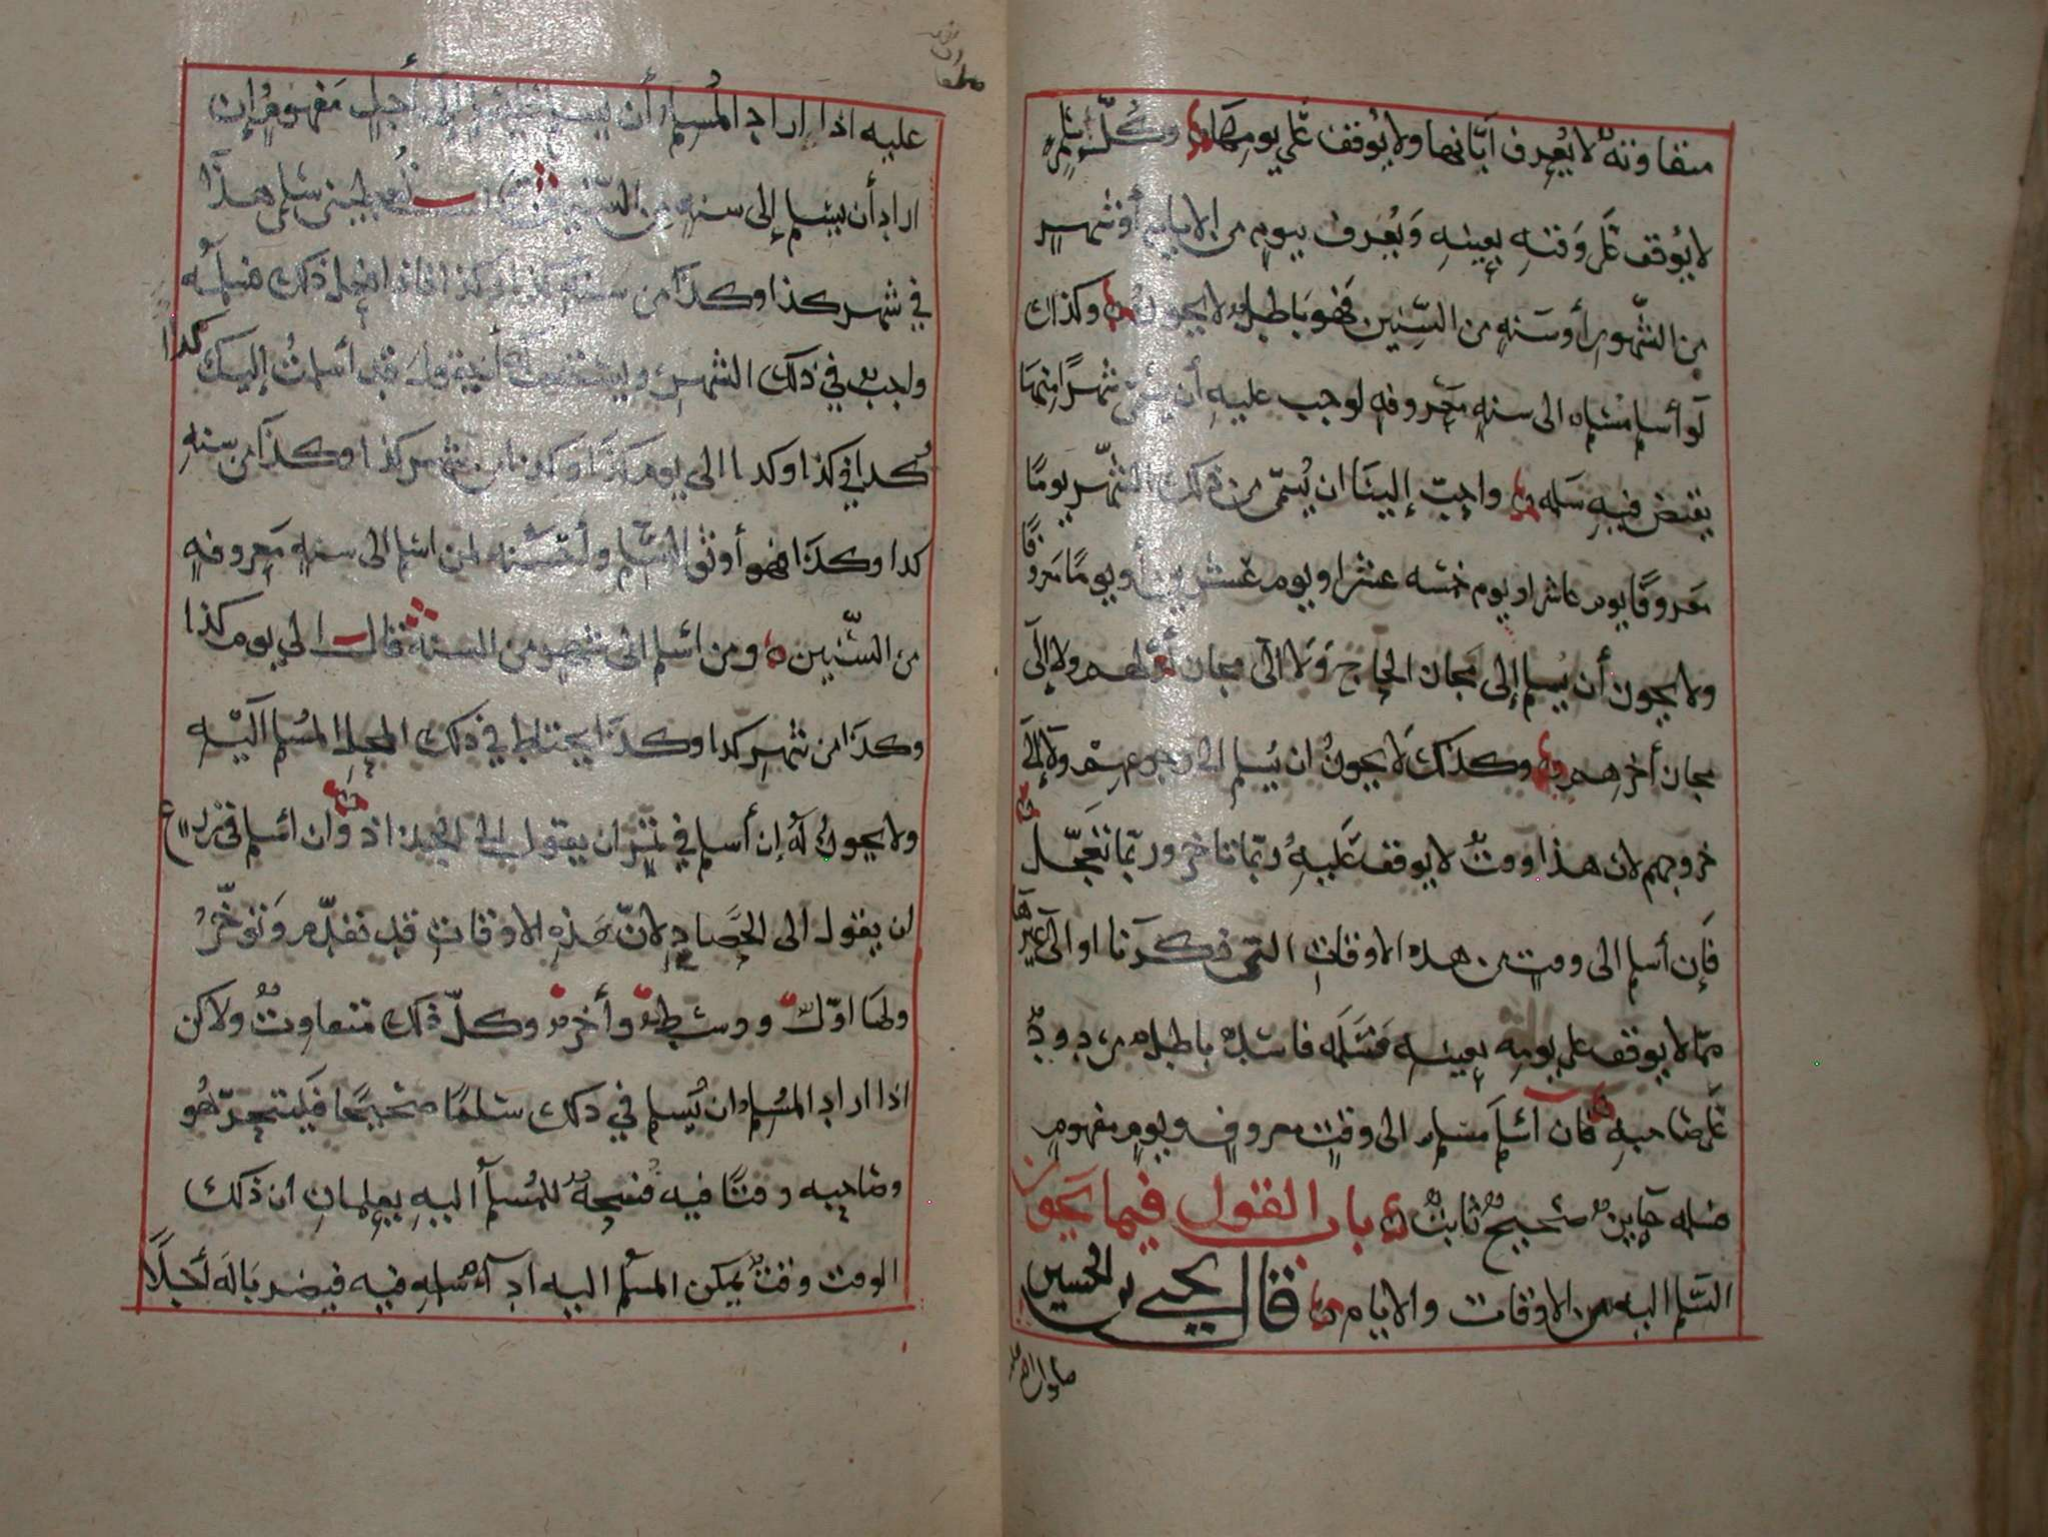 متفاوتة لا يعرف أيامها ولا يوقف على يومها وكل سلم
لا يوقف على وقته بعينه ويعرف بيوم من الايام أو شهر
من الشهور أو سنة من السنين فهو باطل لا يجوز وكذلك
لو أسلم مسلم الى سنة معروفة لوجب عليه أن يسمي شهرًا منها
يقبض فيه سلمه واجبّ إلينا ان يُسمّى من ذلك الشهر يومًا
معروفًا يوم عاشر او يوم خمسه عشر او يوم عشرين أو يومًا معروفًا
ولا يجوز أن يُسلم إلى مجاز الحاج ولا الى مجاز أولهم ولا إلى
مجاز أخرهم وكذلك لا يجوز ان يُسلم الى رجوعهم ولا إلى
خروجهم لان هذا وقت لا يوقف عليه ربّما تأخر وربّما تعجّل
فإن أسلم الى وقت من هذه الاوقات التي ذكرنا او الى غيرها
ممّا لا يوقف على يومه بعينه فسلمه فاسد باطل مردود
على صاحبه فان أسلم مسلم الى وقت معروف ويوم مفهوم
فسلمه جايز صحيح ثابت باب القول فيما يجوز
السّلم اليه من الاوقات والايام قال يحيى بن الحسين
صلوات الله عليه
عليه اذا اراد المُسلم أن يسلم إلى أجل مفهوم إن
اراد أن يسلم إلى سنة من السّنين سلمي هذا
في شهر كذا وكذا من سنة كذا وكذا فاذا فعل ذلك فسلمه
واجب في ذلك الشهر أن يقول قد أسلمتُ إليك كذا
كذا في كذا وكذا الى يوم كذا وكذا من شهر كذا وكذا من سنة
كذا وكذا فهو أوثق السّلم وأحسنه لمن اسلم الى سنة معروفة
من السّنين ومن اسلم الى شهر من السنة قال الى يوم كذا
وكذا من شهر كذا وكذا يحتاط في ذلك المحل المُسلم اليه
ولا يجوز له إن أسلم في تمر ان يقول الى الجداد وان اسلم في زرع
ان يقول الى الحصاد لانّ هذه الاوقات قد تقدّم وتوخّر
ولها اوّل ووسط وأخر وكلّ ذلك متفاوت ولاكن
اذا اراد المُسلم ان يُسلم في ذلك سلمًا صحيحًا فليتحرّ هُو
وصاحبه وقتًا فيه فسحة للمُسلم اليه يعلمان ان ذلك
الوقت وقت يمكن المسلم اليه فيه فيضربا له أجلًا